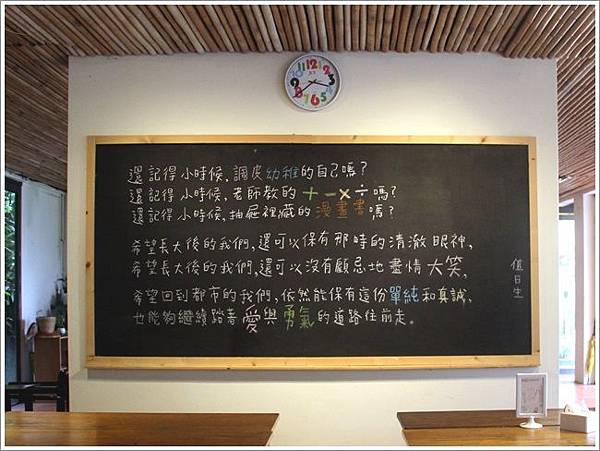 還記得小時候,調皮幼稚的自己嗎?
還記得小時候,老師教的十一×÷嗎?
還記得小時候,抽屜裡藏的漫畫書嗎?
希望長大後的我們,還可以保有那時的清澈眼神、
希望長大後的我們,還可以沒有顧忌地盡情大笑、
希望回到都市的我們,依然能保有這份單純和真誠、
也能夠繼續踏著愛與勇氣的道路往前走。
值日生